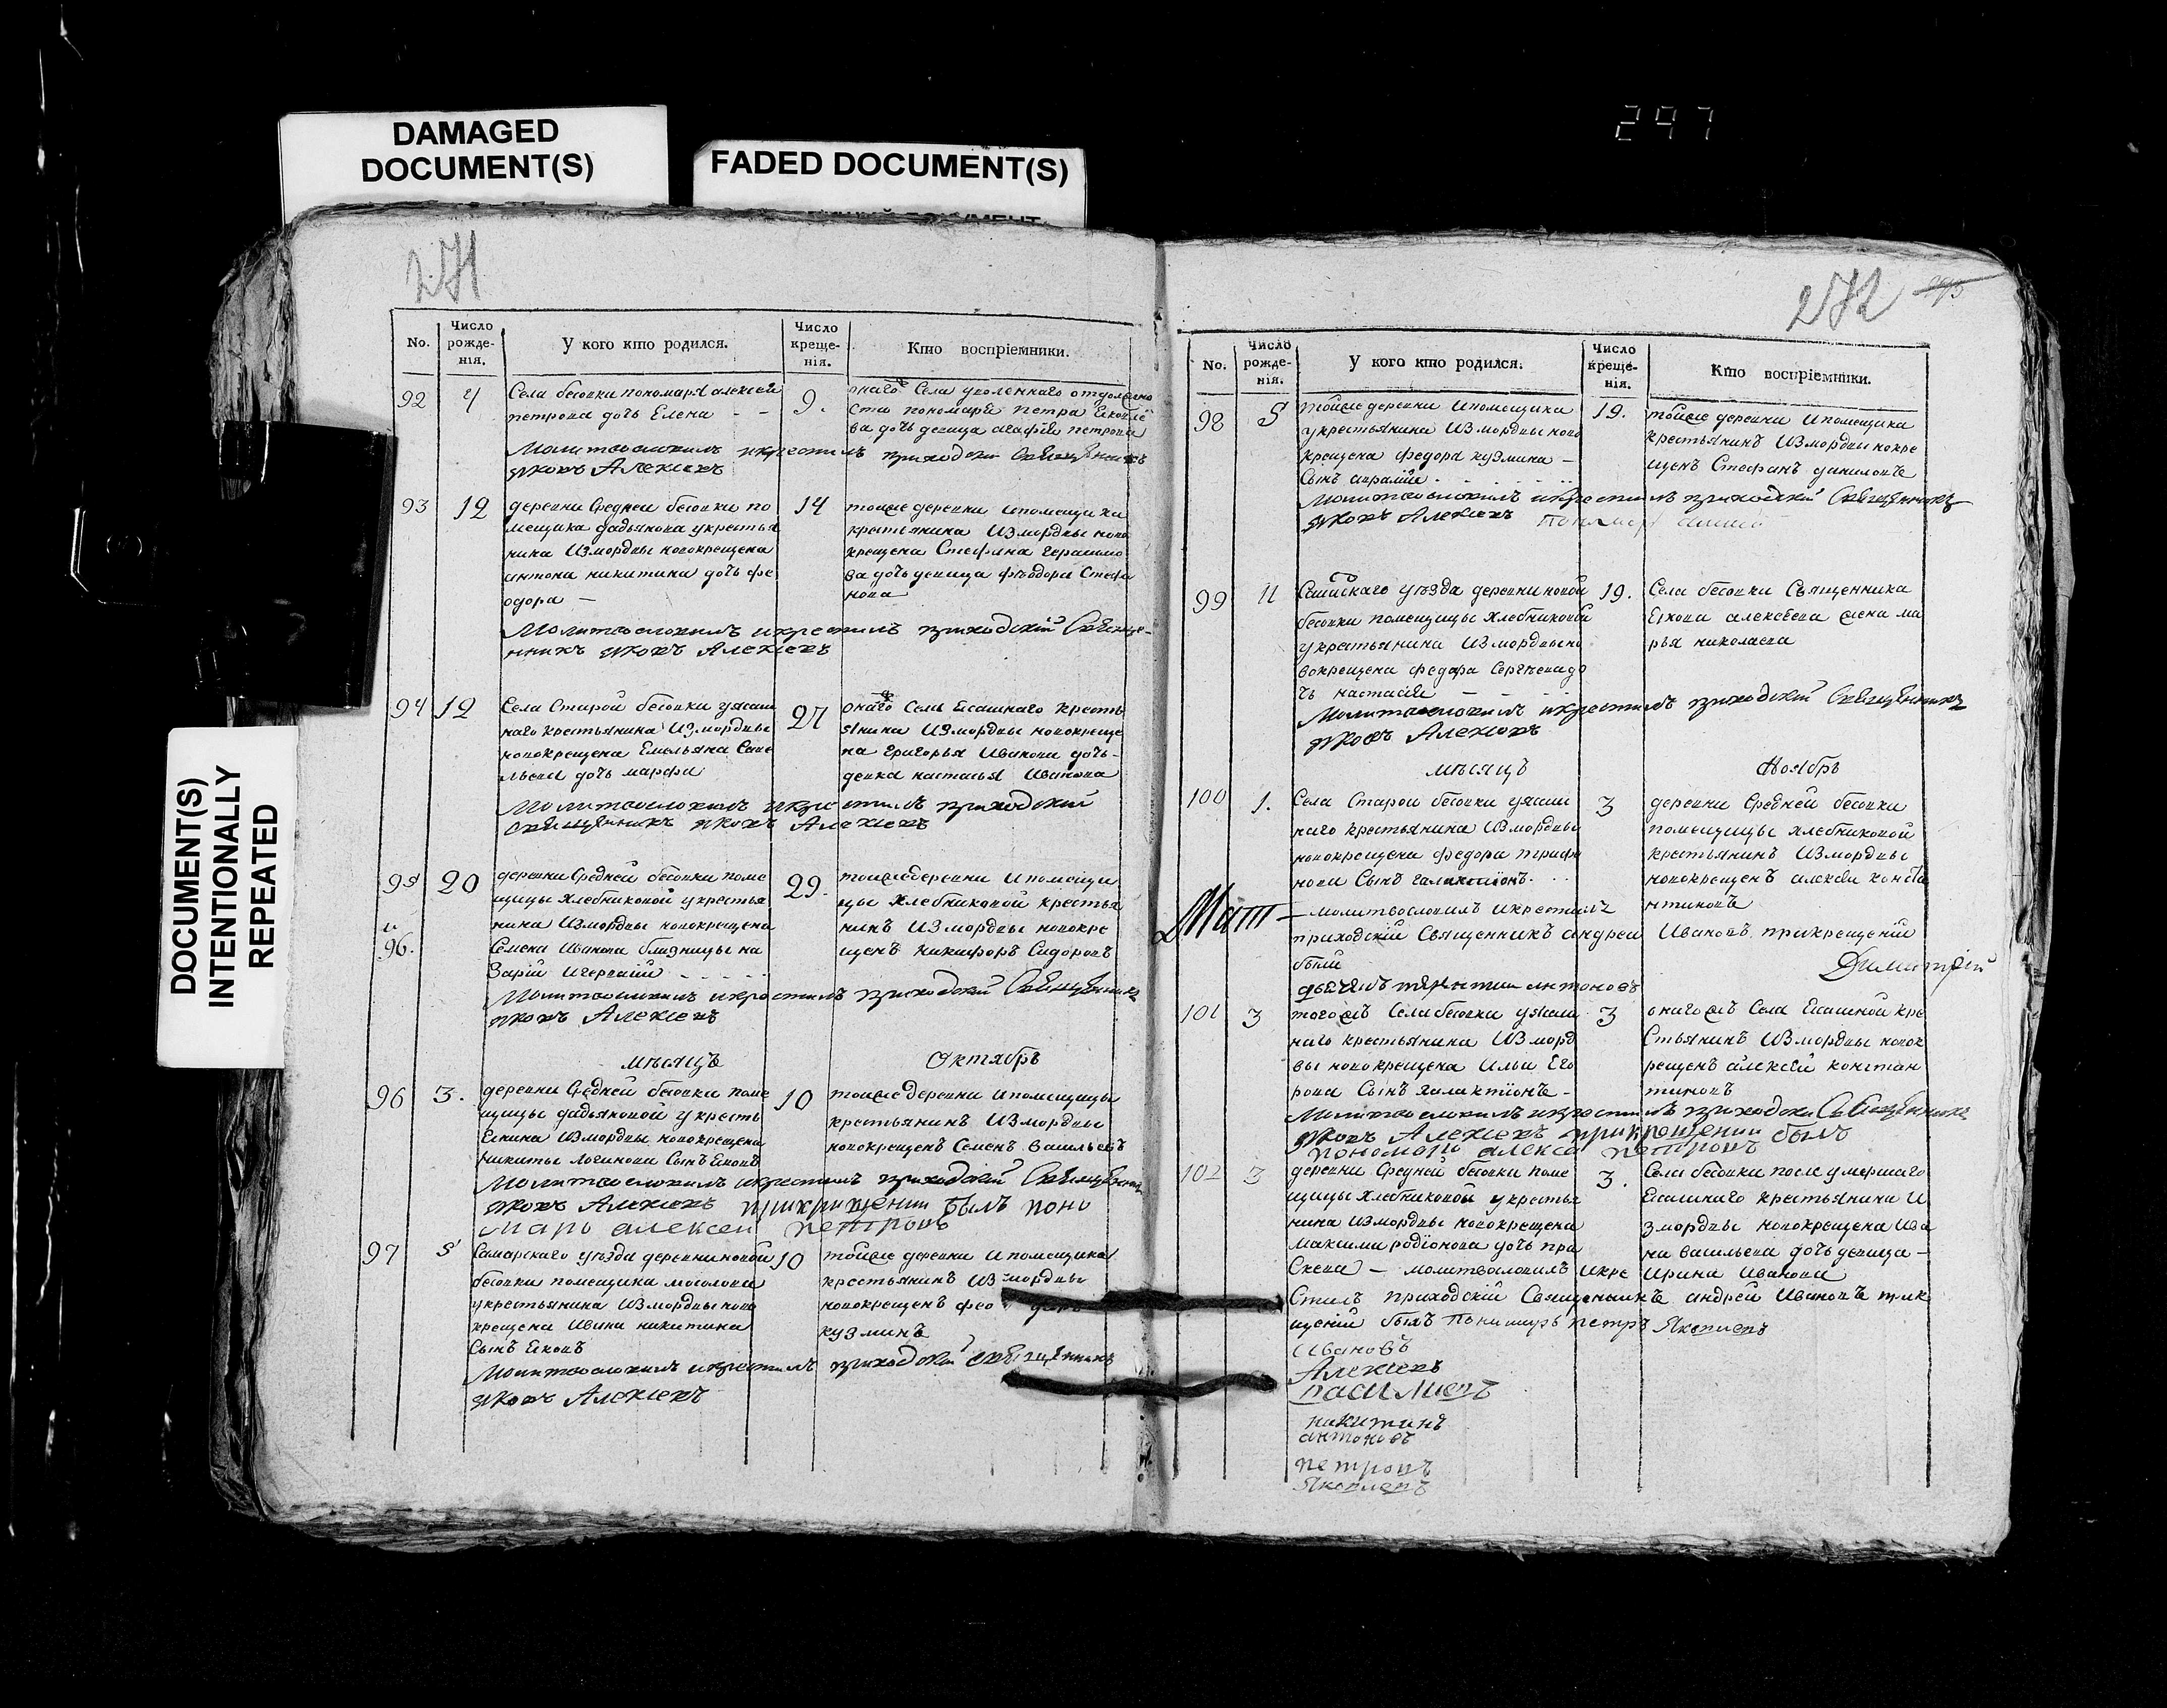 DAMAGED
DOCUMENT(S)
FADED DOCUMENT(S)
297
DOCUMENT(S)
INTENTIONALLY
REPEATED
271
No.
Число рожде-нія.
У кого кто родился.
Число креще-нія.
Кто воспріемники.
92 4 9.
Села бесовки пономаря алексея
петрова дочь Елена - -
онаго Села уволеннаго отдолжно
сти пономаря петра Екавле
ва дочь девица агафия петрова
Молитвословилъ икрестилъ приходской Священникъ
Яковъ Алексеевъ
93 12 14
деревни Средней бесовки по
мещика дадьянова укрестья
нина Измордвы новокрещена
антона никитина дочь фе
одора —
тоиже деревни ипомещика
крестьянина Измордвы ново
крещена Стефана герасимо
ва дочь девица фѣодора Стефа
нова
Молитвословилъ икрестилъ приходский Священ-
нникъ Яковъ Алексеевъ
94 12 27
Села Старой бесовки уясаш
наго крестьянина Измордвы
новокрещена Емельяна Саве
льева дочь марфа
онаго Села Ясашнаго кресть
янина Измордвы новокреще
на григорья Иванова дочь-
девка настасья Иванова
Молитвословилъ икрестилъ приходский
Священникъ Яковъ Алексеевъ
95 20 29.
и
96.
деревни Средней бесовки поме
щицы Хлебниковой укрестья
нина Измордвы новокрещена
Семена Иванова близницы на
зарий игервасий - - - - -
тоижедеревни ипомещи
цы Хлебниковой крестья
нинъ Измордвы новокре
щенъ никифоръ Сидоровъ
Молитвословилъ икрестилъ приходской Священникъ
Яковъ Алексеевъ
мѣсяцъ Октябрь
96 3. 10
деревни Средней бесовки поме
щицы дадьяновой укресть
Енина Измордвы новокрещена
никиты логинова Сынъ Еаковъ
тоиже деревни ипомещицы
крестьянинъ Измордвы
новокрещенъ Семенъ васильевъ
Молитвословилъ икрестилъ приходской Священникъ
Яковъ Алексеевъ прикрищении былъ поно
марь алексеи петровъ
97 5 10
Самарскаго уѣзда деревниновой
бесовки помещика мосолова
укрестьянина Измордвы ново
крещена Ивана никитина
Сынъ Еаковъ
тоиже деревни ипомещика
крестьянинъ Измордвы
новокрещенъ фео доръ
кузминъ
Молитвословилъ икрестилъ приходской священникъ
Яковъ Алексеевъ
272
No.
Число рожде-нія.
У кого кто родился.
Число креще-нія.
Кто воспріемники.
98 5 19.
тоиже деревни ипомещика
укрестьянина Измордвы ново
крещена федора кузмина —
Сынъ
тоиже деревни ипомещика
крестьянинъ Измордвы новокре
щенъ Стефанъ даниловъ
Молитвословилъ икрестилъ приходский Священникъ
Яковъ Алексеевъ
99 11 19.
уѣзда деревниновой
бесовки помещицы Хлебниковой
укрестьянина Измордвыно
вокрещена федора Сергеевадо
чь настасия
Села бесовки Священника
Еакова алексеева жена ма
рья николаева
Молитвословилъ икрестилъ приходский Священникъ
Яковъ Алексеевъ
мѣсяцъ Ноябрь
100 1. 3
Села Старой бесовки уясаш
наго крестьянина Измордвы
новокрещена федора трифо
нова Сынъ галактионъ. . .
деревни Средней бесовки
помещицы хлебниковой
крестьянинъ Измордвы
новокрещенъ алексеи конста
нтиновъ
молитвословилъ икрестилъ
приходский Священникъ андреи Ивановъ прикрещении
былъ
Димитрий
дьячекъ терентии антоновъ
101 3 3
тогожъ Селабесовки уясаш
наго крестьянина Измord
вы новокрещена Ильи Его
рова Сынъ галактионъ -
онагожъ Села Ясашной кре
Стьянинъ Измордвы новок
рещенъ алексеи констан
тиновъ
Молитвословилъ икрестилъ приходски Священникъ
Яковъ Алексеевъ прикрещении былъ
пономарь алексеи петровъ
102 3 3.
деревни Средней бесовки поме
щицы Хлебниковой укрестья
нина измордвы новокрещена
максима родионова дочь пра
Скева — молитвословилъ икре
Села бесовки после умершаго
Ясашнаго крестьянина И
змордвы новокрещена Ива
на васильева дочь девица —
Ирина Иванова
Стилъ приходский Священникъ андреи Ивановъ прик
щении былъ Пономарь петръ Яковлевъ
Ивановъ
Алексеевъ
василиевъ
никитинъ
антоновъ
петровъ
Яковлевъ